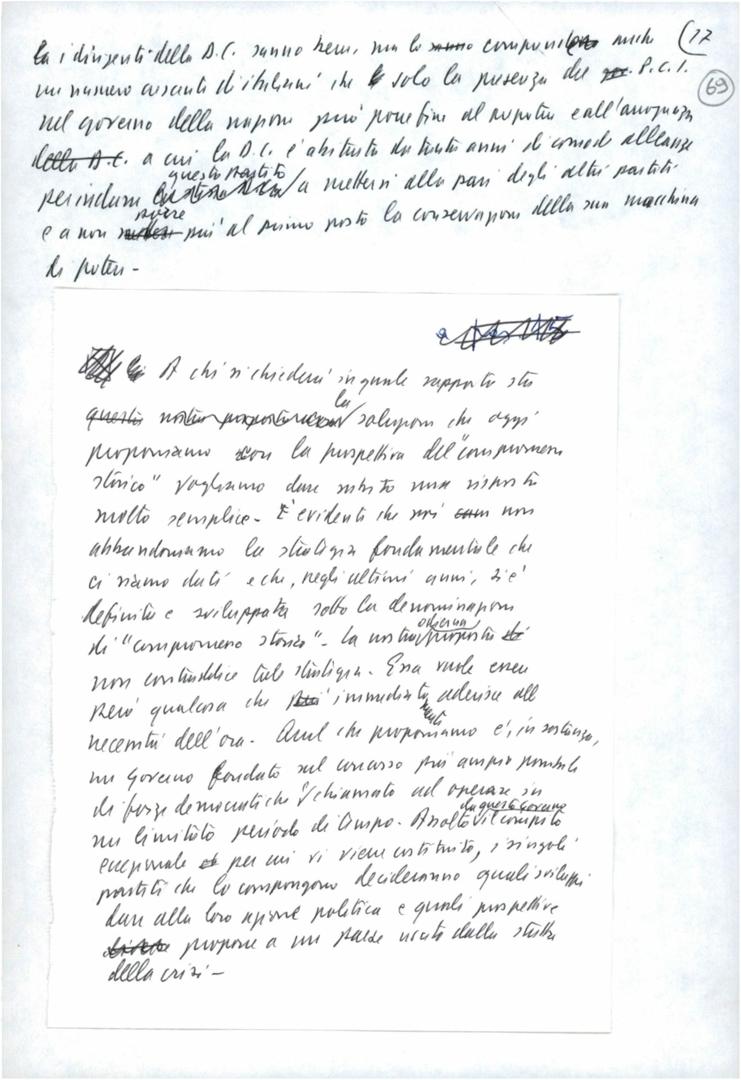 (17
69
la i dirigenti della D.C. sanno bene, ma lo comprendono anche
un numero crescente di italiani che solo la presenza del P.C.I.
nel governo della nazione può porre fine al e all'arroganza
della D.C. a cui la D.C. è abituata da tanti anni di comode alleanze
per indurre questo partito a mettersi alla pari degli altri partiti
e a non porre più al primo posto la conservazione della sua macchina
di potere -
A chi ci chiederà in quale rapporto sta
questa nostra proposta la soluzione che oggi
proponiamo con la prospettiva del "compromesso
storico" vogliamo dare subito una risposta
molto semplice - È evidente che noi non
abbandoniamo la strategia fondamentale che
ci siamo dati e che, negli ultimi anni, si è
definita e sviluppata sotto la denominazione
di "compromesso storico" - La nostra odierna proposta
non contraddice tale strategia - Essa vuole essere
però qualcosa che più immediatamente aderisce alle
necessità dell'ora - Quel che proponiamo è, in sostanza,
un Governo fondato sul concorso più ampio possibile
di forze democratiche chiamato ad operare in
un limitato periodo di tempo - Assolto da questo Governo il compito
eccezionale per cui vi viene costituito, i singoli
partiti che lo compongono decideranno quali sviluppi
dare alla loro azione politica e quali prospettive
proporre a un paese uscito dalla stretta
della crisi -